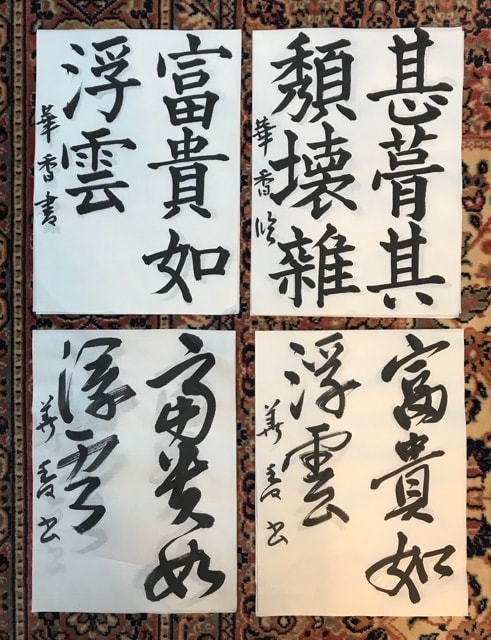 其
頽壊雜
華香臨
富貴如
浮雲
華香書
富貴如
浮雲
華香書
富貴如
浮雲
華香書